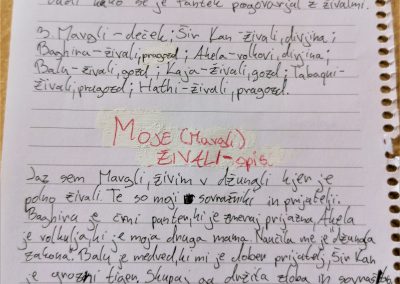 kako se je fantek pogovarjal z živalmi.
3. Mavgli - deček; Šir Kan - živali, divjina;
Baghira - živali, pragozd; Akela - volkovi, divjina;
Balu - živali, gozd; Kaja - živali, gozd; Tabaqui -
živali, pragozd; Hathi - živali, pragozd.
MOJE (Mavgli)
ŽIVALI - spis.
Jaz sem Mavgli, živim v džungli kjer je
polno živali. Te so moji sovražniki in prijatelji.
Baghira je črni panter, ki je zmeraj prijazna, Akela
je volkulja, ki je moja druga mama. Naučila me je džungla
zakona. Balu je medved, ki mi je dober prijatelj, Šir Kan
je grozni tiger. Skupaj ga držita zloba in